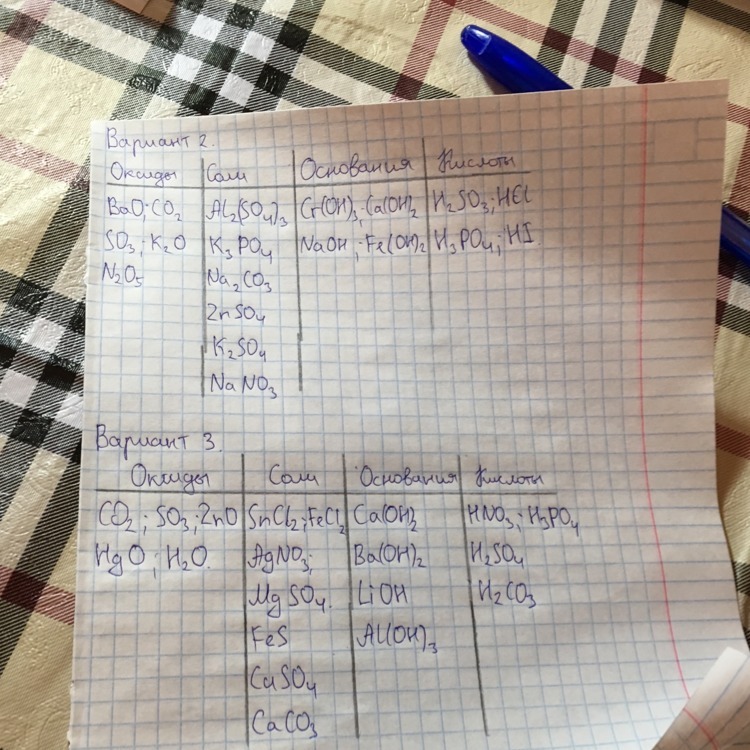 Вариант 2.
Оксиды Соли Основания Кислоты
BaO; CO₂ Al₂(SO₄)₃ Cr(OH)₃; Ca(OH)₂ H₂SO₃; HCl
SO₃; K₂O K₃PO₄ NaOH; Fe(OH)₂ H₃PO₄; HI
N₂O₅ Na₂CO₃
ZnSO₄
K₂SO₄
NaNO₃
Вариант 3.
Оксиды Соли Основания Кислоты
CO₂; SO₃; ZnO SnCl₂; FeCl₂ Ca(OH)₂ HNO₃; H₃PO₄
HgO; H₂O. AgNO₃; Ba(OH)₂ H₂SO₄
MgSO₄. LiOH H₂CO₃
FeS Al(OH)₃
CuSO₄
CaCO₃